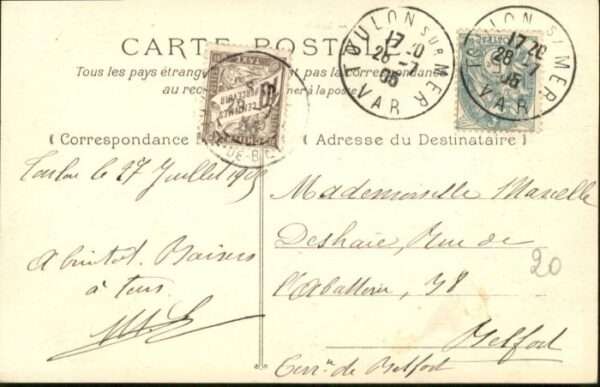 CARTE POSTALE
Tous les pays étrangers pas la correspondance
au recto
à la poste
TOULON SUR MER
17 20
28 - 7
05
VAR
TOULON S/MER
17 20
28 - 7
05
VAR
TAXE
10
CENTIMES
À PERCEVOIR
(Correspondance
(Adresse du Destinataire)
Toulon le 27 Juillet 1905
A bientot. Baisers
à tous
Mademoiselle Marcelle
Deshaie, Rue de
l'Abattoir, 38
Belfort
Terr. re de Belfort
20